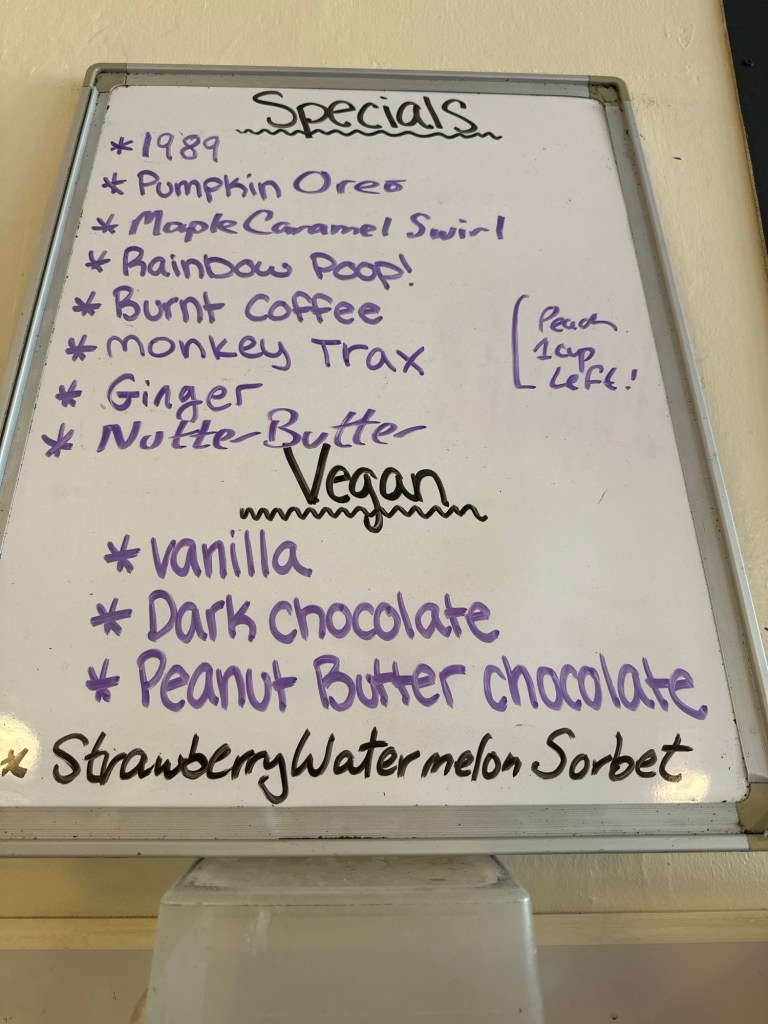 Specials
* 1989
* Pumpkin Oreo
* Maple Caramel Swirl
* Rainbow Poop!
* Burnt Coffee
* monkey Trax
* Ginger
* Nutter Butter
Peach
1 cup
Left!
Vegan
* vanilla
* Dark chocolate
* Peanut Butter chocolate
* Strawberry Watermelon Sorbet